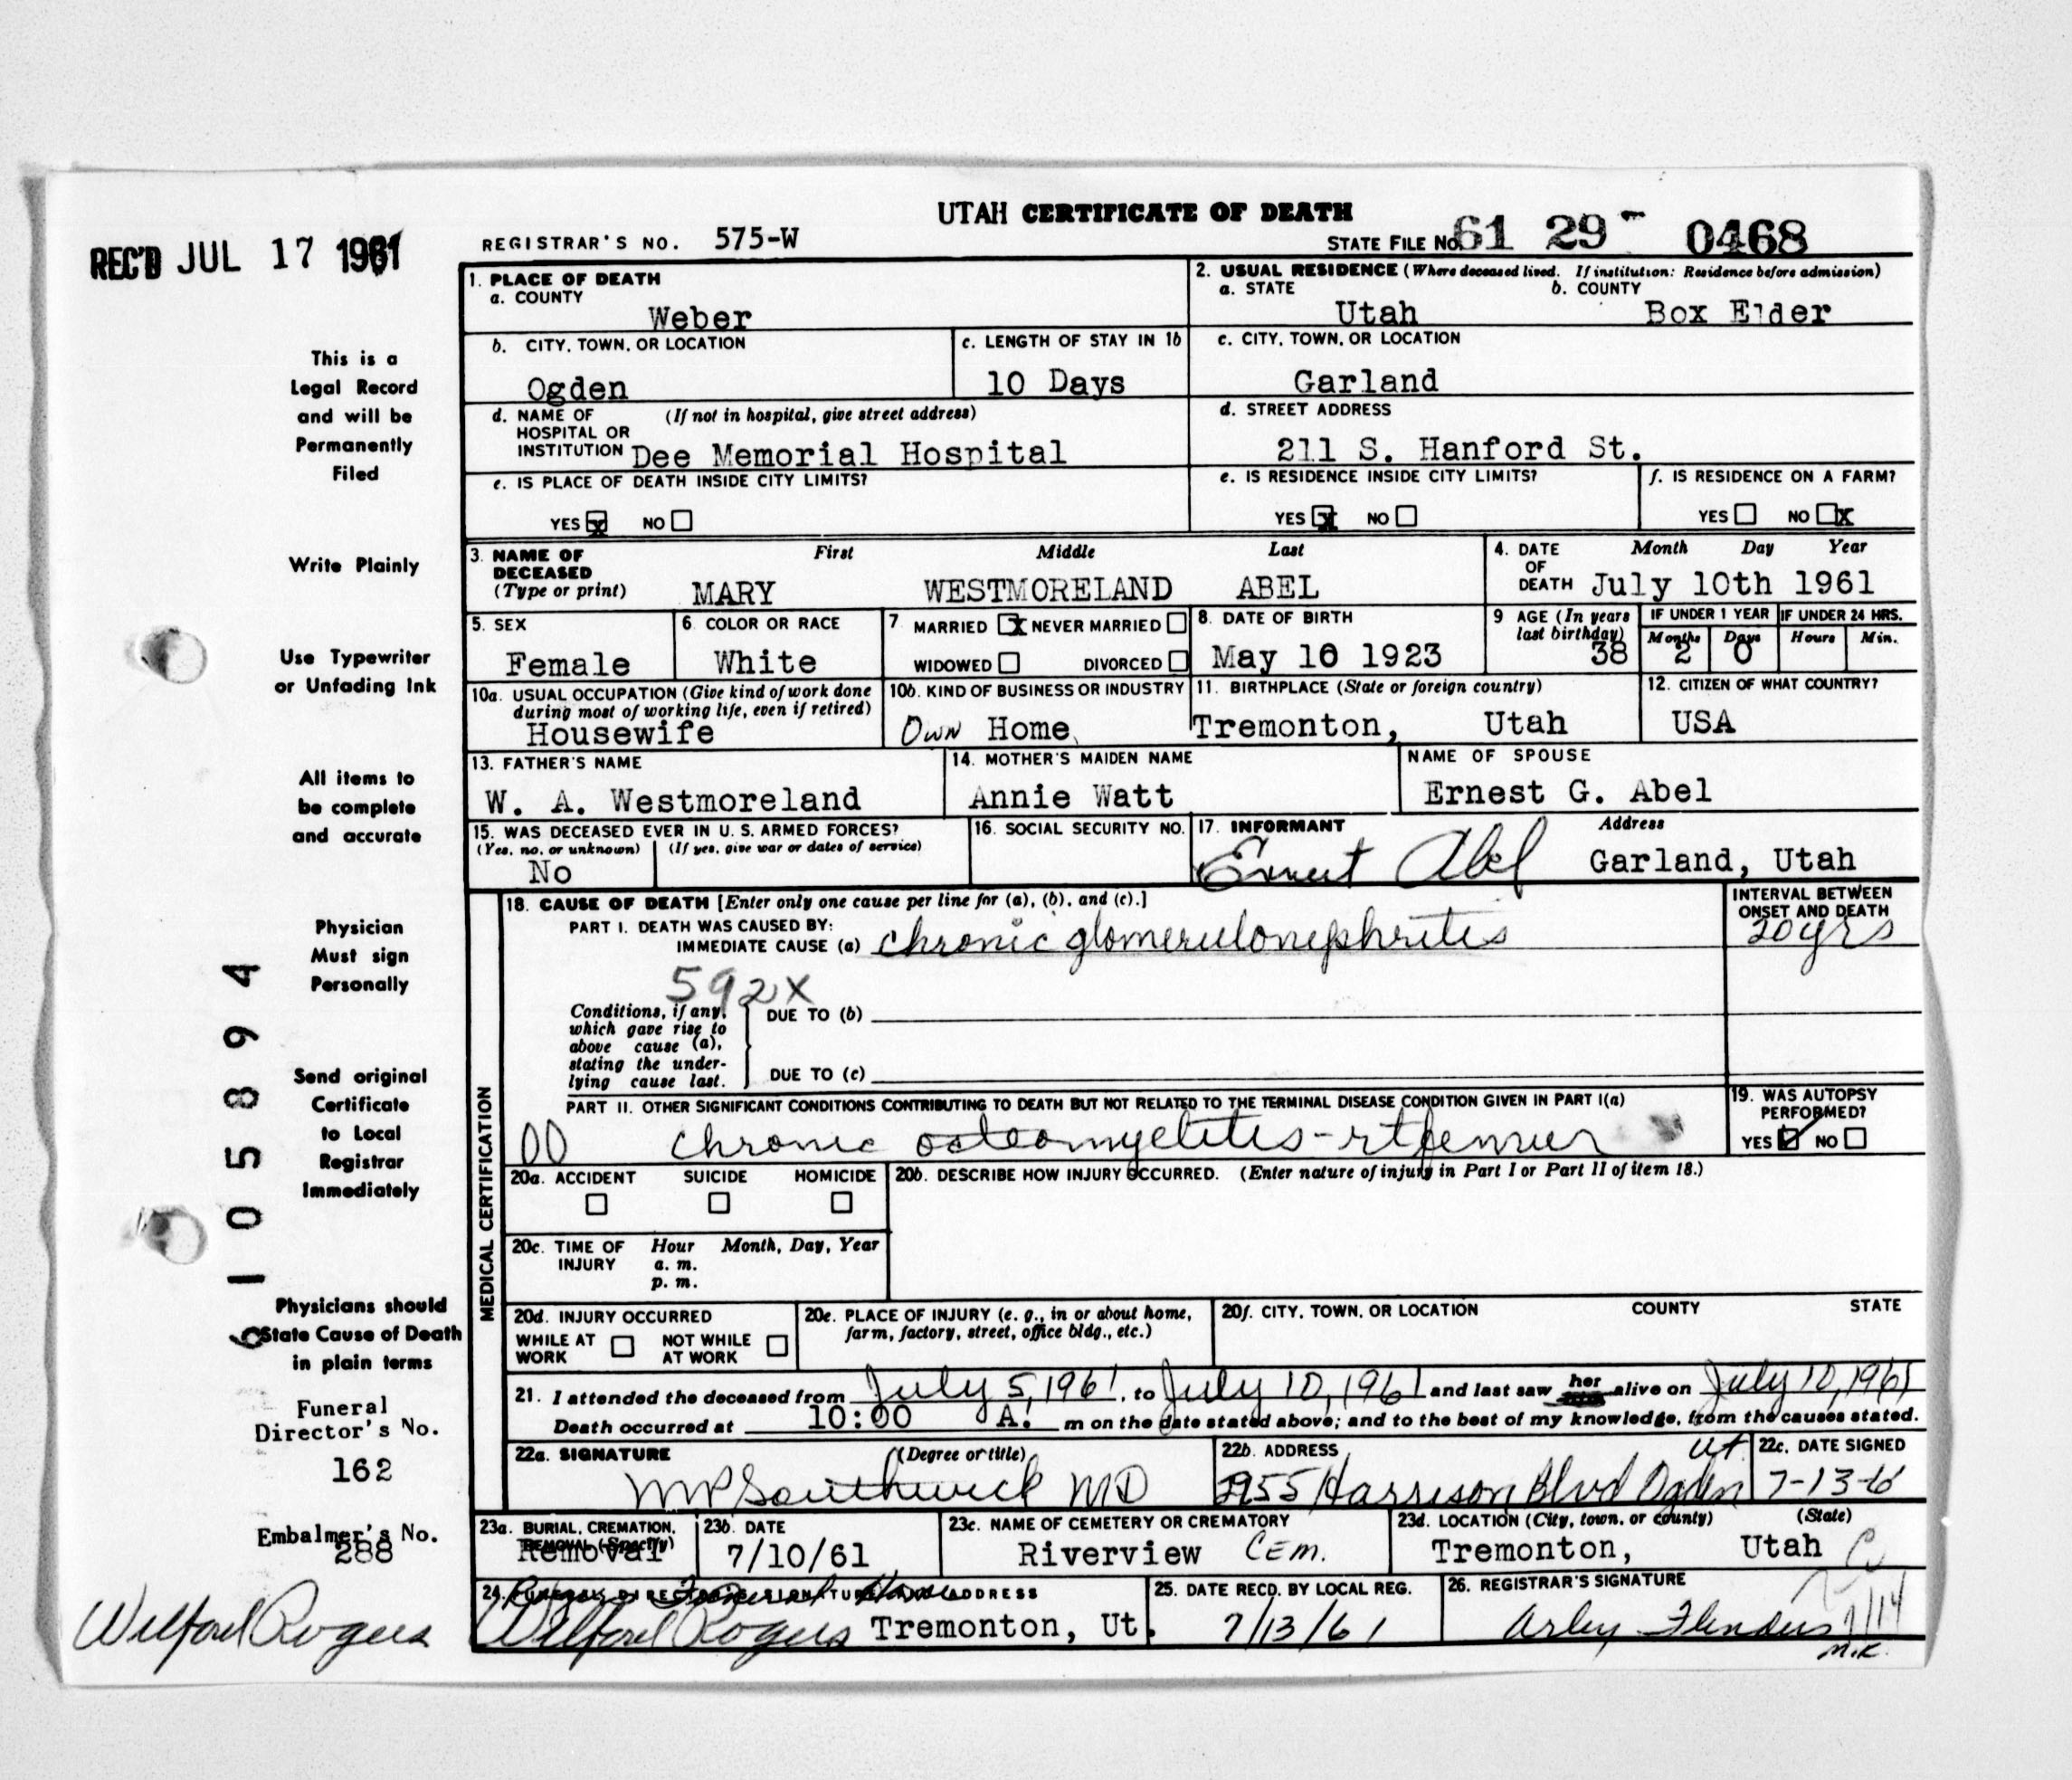 UTAH CERTIFICATE OF DEATH
REC'D JUL 17 1961
REGISTRAR'S NO. 575-W
STATE FILE NO. 61 29 - 0468
1. PLACE OF DEATH
a. COUNTY
Weber
2. USUAL RESIDENCE (Where deceased lived. If institution: Residence before admission)
a. STATE
Utah
b. COUNTY
Box Elder
b. CITY, TOWN, OR LOCATION
Ogden
c. LENGTH OF STAY IN 1b
10 Days
c. CITY, TOWN, OR LOCATION
Garland
d. NAME OF (If not in hospital, give street address)
HOSPITAL OR
INSTITUTION Dee Memorial Hospital
d. STREET ADDRESS
211 S. Hanford St.
e. IS PLACE OF DEATH INSIDE CITY LIMITS?
YES x NO
e. IS RESIDENCE INSIDE CITY LIMITS?
YES x NO
f. IS RESIDENCE ON A FARM?
YES NO x
3. NAME OF DECEASED (Type or print)
First Middle Last
MARY WESTMORELAND ABEL
4. DATE OF DEATH
Month Day Year
July 10th 1961
5. SEX
Female
6. COLOR OR RACE
White
7. MARRIED x NEVER MARRIED
WIDOWED DIVORCED
8. DATE OF BIRTH
May 10 1923
9 AGE (In years last birthday)
38
IF UNDER 1 YEAR
Months Days
2 0
IF UNDER 24 HRS.
Hours Min.
10a. USUAL OCCUPATION (Give kind of work done during most of working life, even if retired)
Housewife
10b. KIND OF BUSINESS OR INDUSTRY
Own Home
11. BIRTHPLACE (State or foreign country)
Tremonton, Utah
12. CITIZEN OF WHAT COUNTRY?
USA
13. FATHER'S NAME
W. A. Westmoreland
14. MOTHER'S MAIDEN NAME
Annie Watt
NAME OF SPOUSE
Ernest G. Abel
15. WAS DECEASED EVER IN U. S. ARMED FORCES?
(Yes, no, or unknown) (If yes, give war or dates of service)
No
16. SOCIAL SECURITY NO.
17. INFORMANT Address
Ernest Abel Garland, Utah
MEDICAL CERTIFICATION
18. CAUSE OF DEATH [Enter only one cause per line for (a), (b), and (c).]
INTERVAL BETWEEN
ONSET AND DEATH
PART I. DEATH WAS CAUSED BY:
IMMEDIATE CAUSE (a) chronic glomerulonephritis
20 yrs
592X
Conditions, if any,
which gave rise to
above cause (a),
stating the under-
lying cause last.
DUE TO (b)
DUE TO (c)
PART II. OTHER SIGNIFICANT CONDITIONS CONTRIBUTING TO DEATH BUT NOT RELATED TO THE TERMINAL DISEASE CONDITION GIVEN IN PART I(a)
00 chronic osteomyelitis - rt femur
19. WAS AUTOPSY
PERFORMED?
YES ✓ NO
20a. ACCIDENT SUICIDE HOMICIDE
20b. DESCRIBE HOW INJURY OCCURRED. (Enter nature of injury in Part I or Part II of item 18.)
20c. TIME OF INJURY
Hour Month, Day, Year
a. m.
p. m.
20d. INJURY OCCURRED
WHILE AT WORK NOT WHILE AT WORK
20e. PLACE OF INJURY (e. g., in or about home,
farm, factory, street, office bldg., etc.)
20f. CITY, TOWN, OR LOCATION COUNTY STATE
21. I attended the deceased from July 5, 1961, to July 10, 1961 and last saw her alive on July 10, 1961
Death occurred at 10:00 A. m on the date stated above; and to the best of my knowledge, from the causes stated.
22a. SIGNATURE (Degree or title)
MP Southwick MD
22b. ADDRESS
2955 Harrison Blvd Ogden Ut
22c. DATE SIGNED
7-13-61
23a. BURIAL, CREMATION,
REMOVAL (Specify)
Removal
23b. DATE
7/10/61
23c. NAME OF CEMETERY OR CREMATORY
Riverview Cem.
23d. LOCATION (City, town, or county) (State)
Tremonton, Utah
24. FUNERAL DIRECTOR'S SIGNATURE AND ADDRESS
Rogers Funeral Home
Wilford Rogers Tremonton, Ut.
25. DATE RECD. BY LOCAL REG.
7/13/61
26. REGISTRAR'S SIGNATURE
Arley Flinders
7/14
M.K.
This is a
Legal Record
and will be
Permanently
Filed
Write Plainly
Use Typewriter
or Unfading Ink
All items to
be complete
and accurate
Physician
Must sign
Personally
Send original
Certificate
to Local
Registrar
Immediately
Physicians should
State Cause of Death
in plain terms
Funeral
Director's No.
162
Embalmer's No.
288
Wilford Rogers
6105894